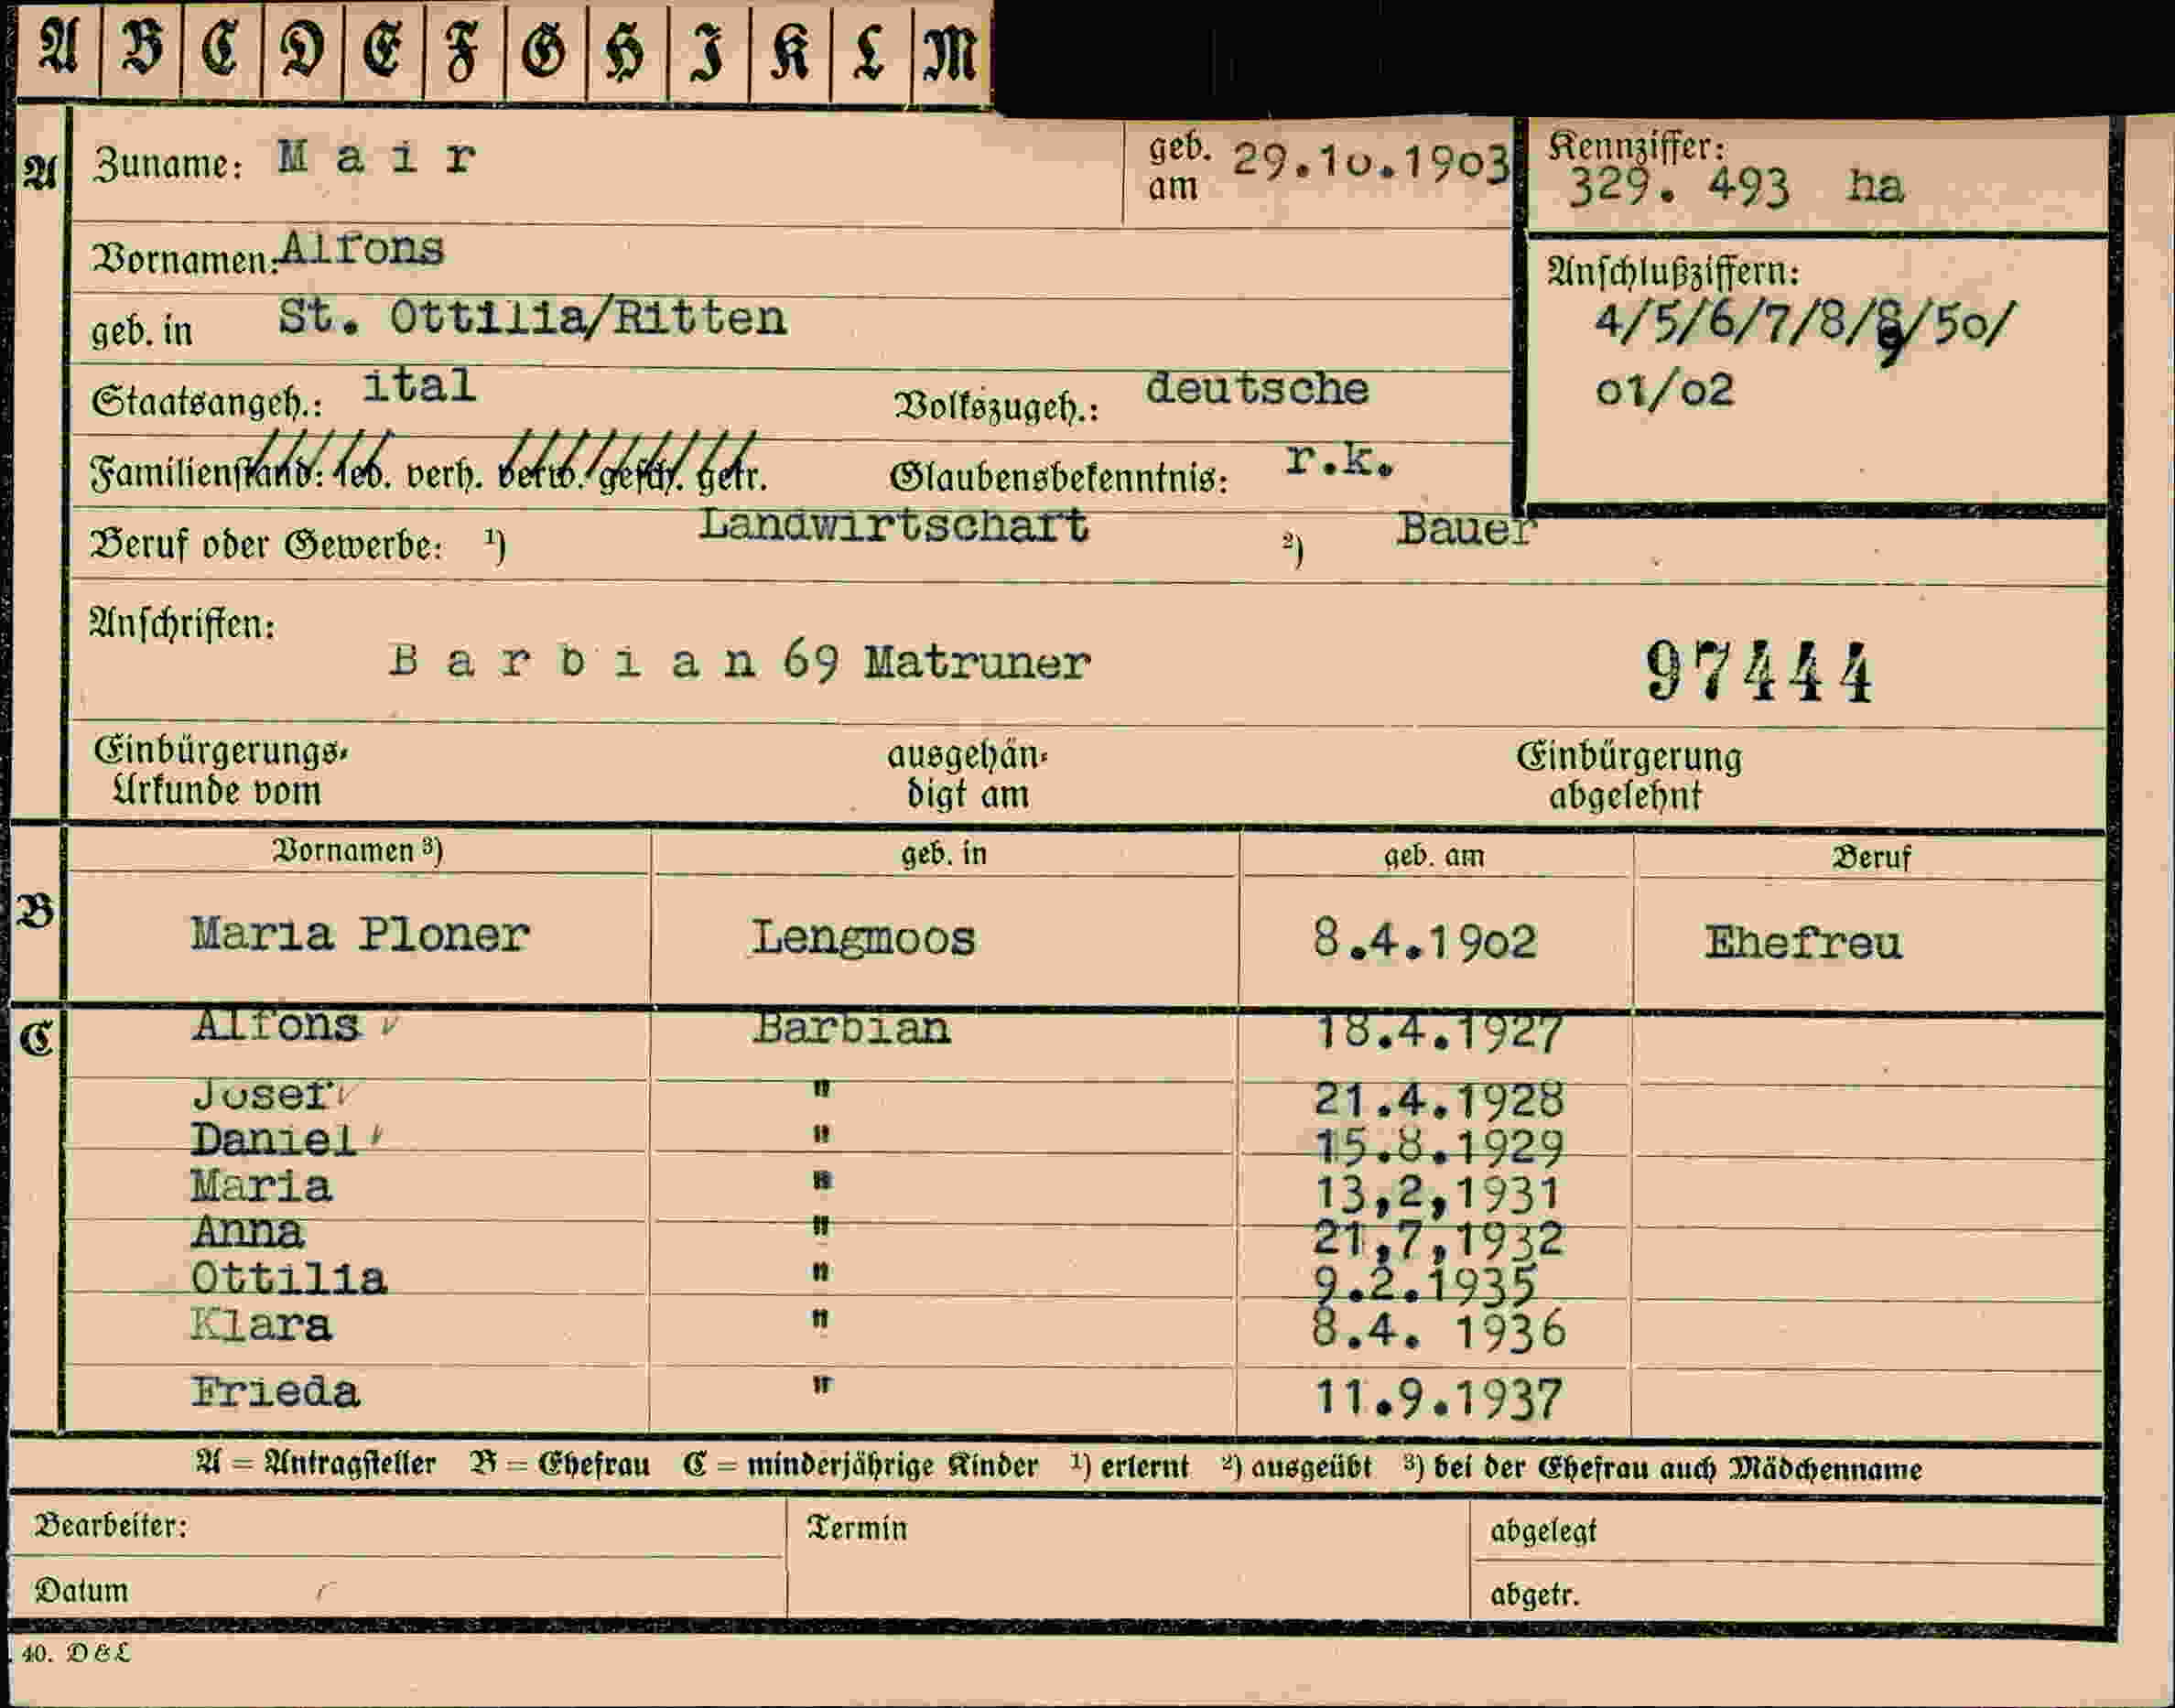 A B C D E F G H I K L M
A Zuname: M a i r geb. am 29.10.1903 Kennziffer: 329. 493 ha
Vornamen: Alfons
Anschlußziffern:
geb. in St. Ottilia/Ritten 4/5/6/7/8/9/50/
Staatsangeh.: ital Volkszugeh.: deutsche 01/02
Familienstand: led. verh. verw. gesch. getr. Glaubensbekenntnis: r.k.
Beruf oder Gewerbe: 1) Landwirtschaft 2) Bauer
Anschriften:
B a r b i a n 69 Matruner 97444
Einbürgerungs- ausgehän- Einbürgerung
Urkunde vom digt am abgelehnt
Vornamen 3) geb. in geb. am Beruf
B Maria Ploner Lengmoos 8.4.1902 Ehefreu
C Alfons Barbian 18.4.1927
Josef " 21.4.1928
Daniel " 15.8.1929
Maria " 13,2,1931
Anna " 21,7,1932
Ottilia " 9.2.1935
Klara " 8.4. 1936
Frieda " 11.9.1937
A = Antragsteller B = Ehefrau C = minderjährige Kinder 1) erlernt 2) ausgeübt 3) bei der Ehefrau auch Mädchenname
Bearbeiter: Termin abgelegt
Datum abgetr.
40. D&L